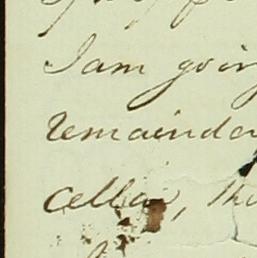 I am going
remainder
cellar, the